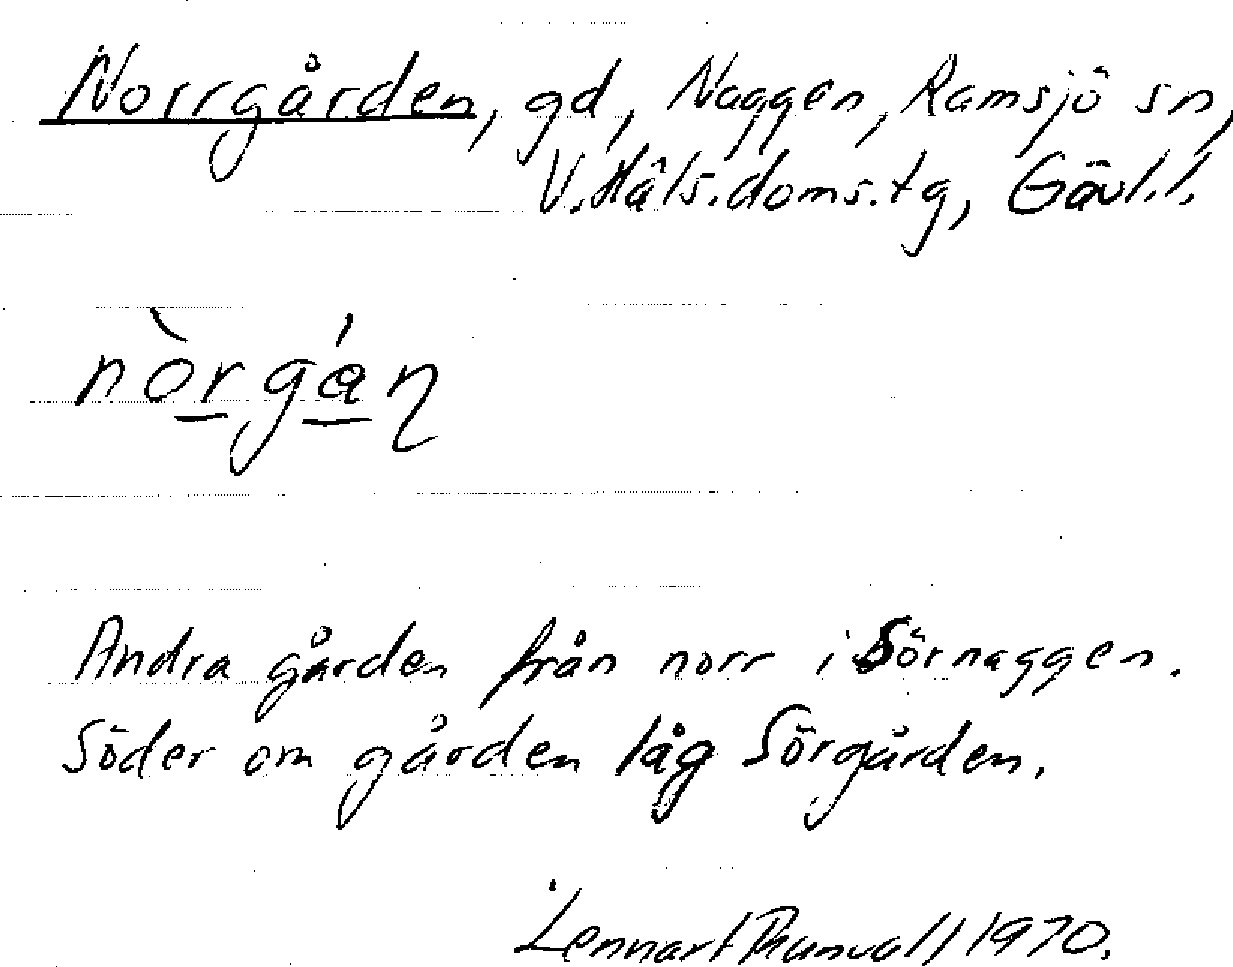 Norrgården, gd, Naggen, Ramsjö sn,
V. Häls. doms. tg, Gävl. l.
nòrgán
Andra gården från norr i Sörnaggen.
Söder om gården låg Sörgården.
Lennart 1970.